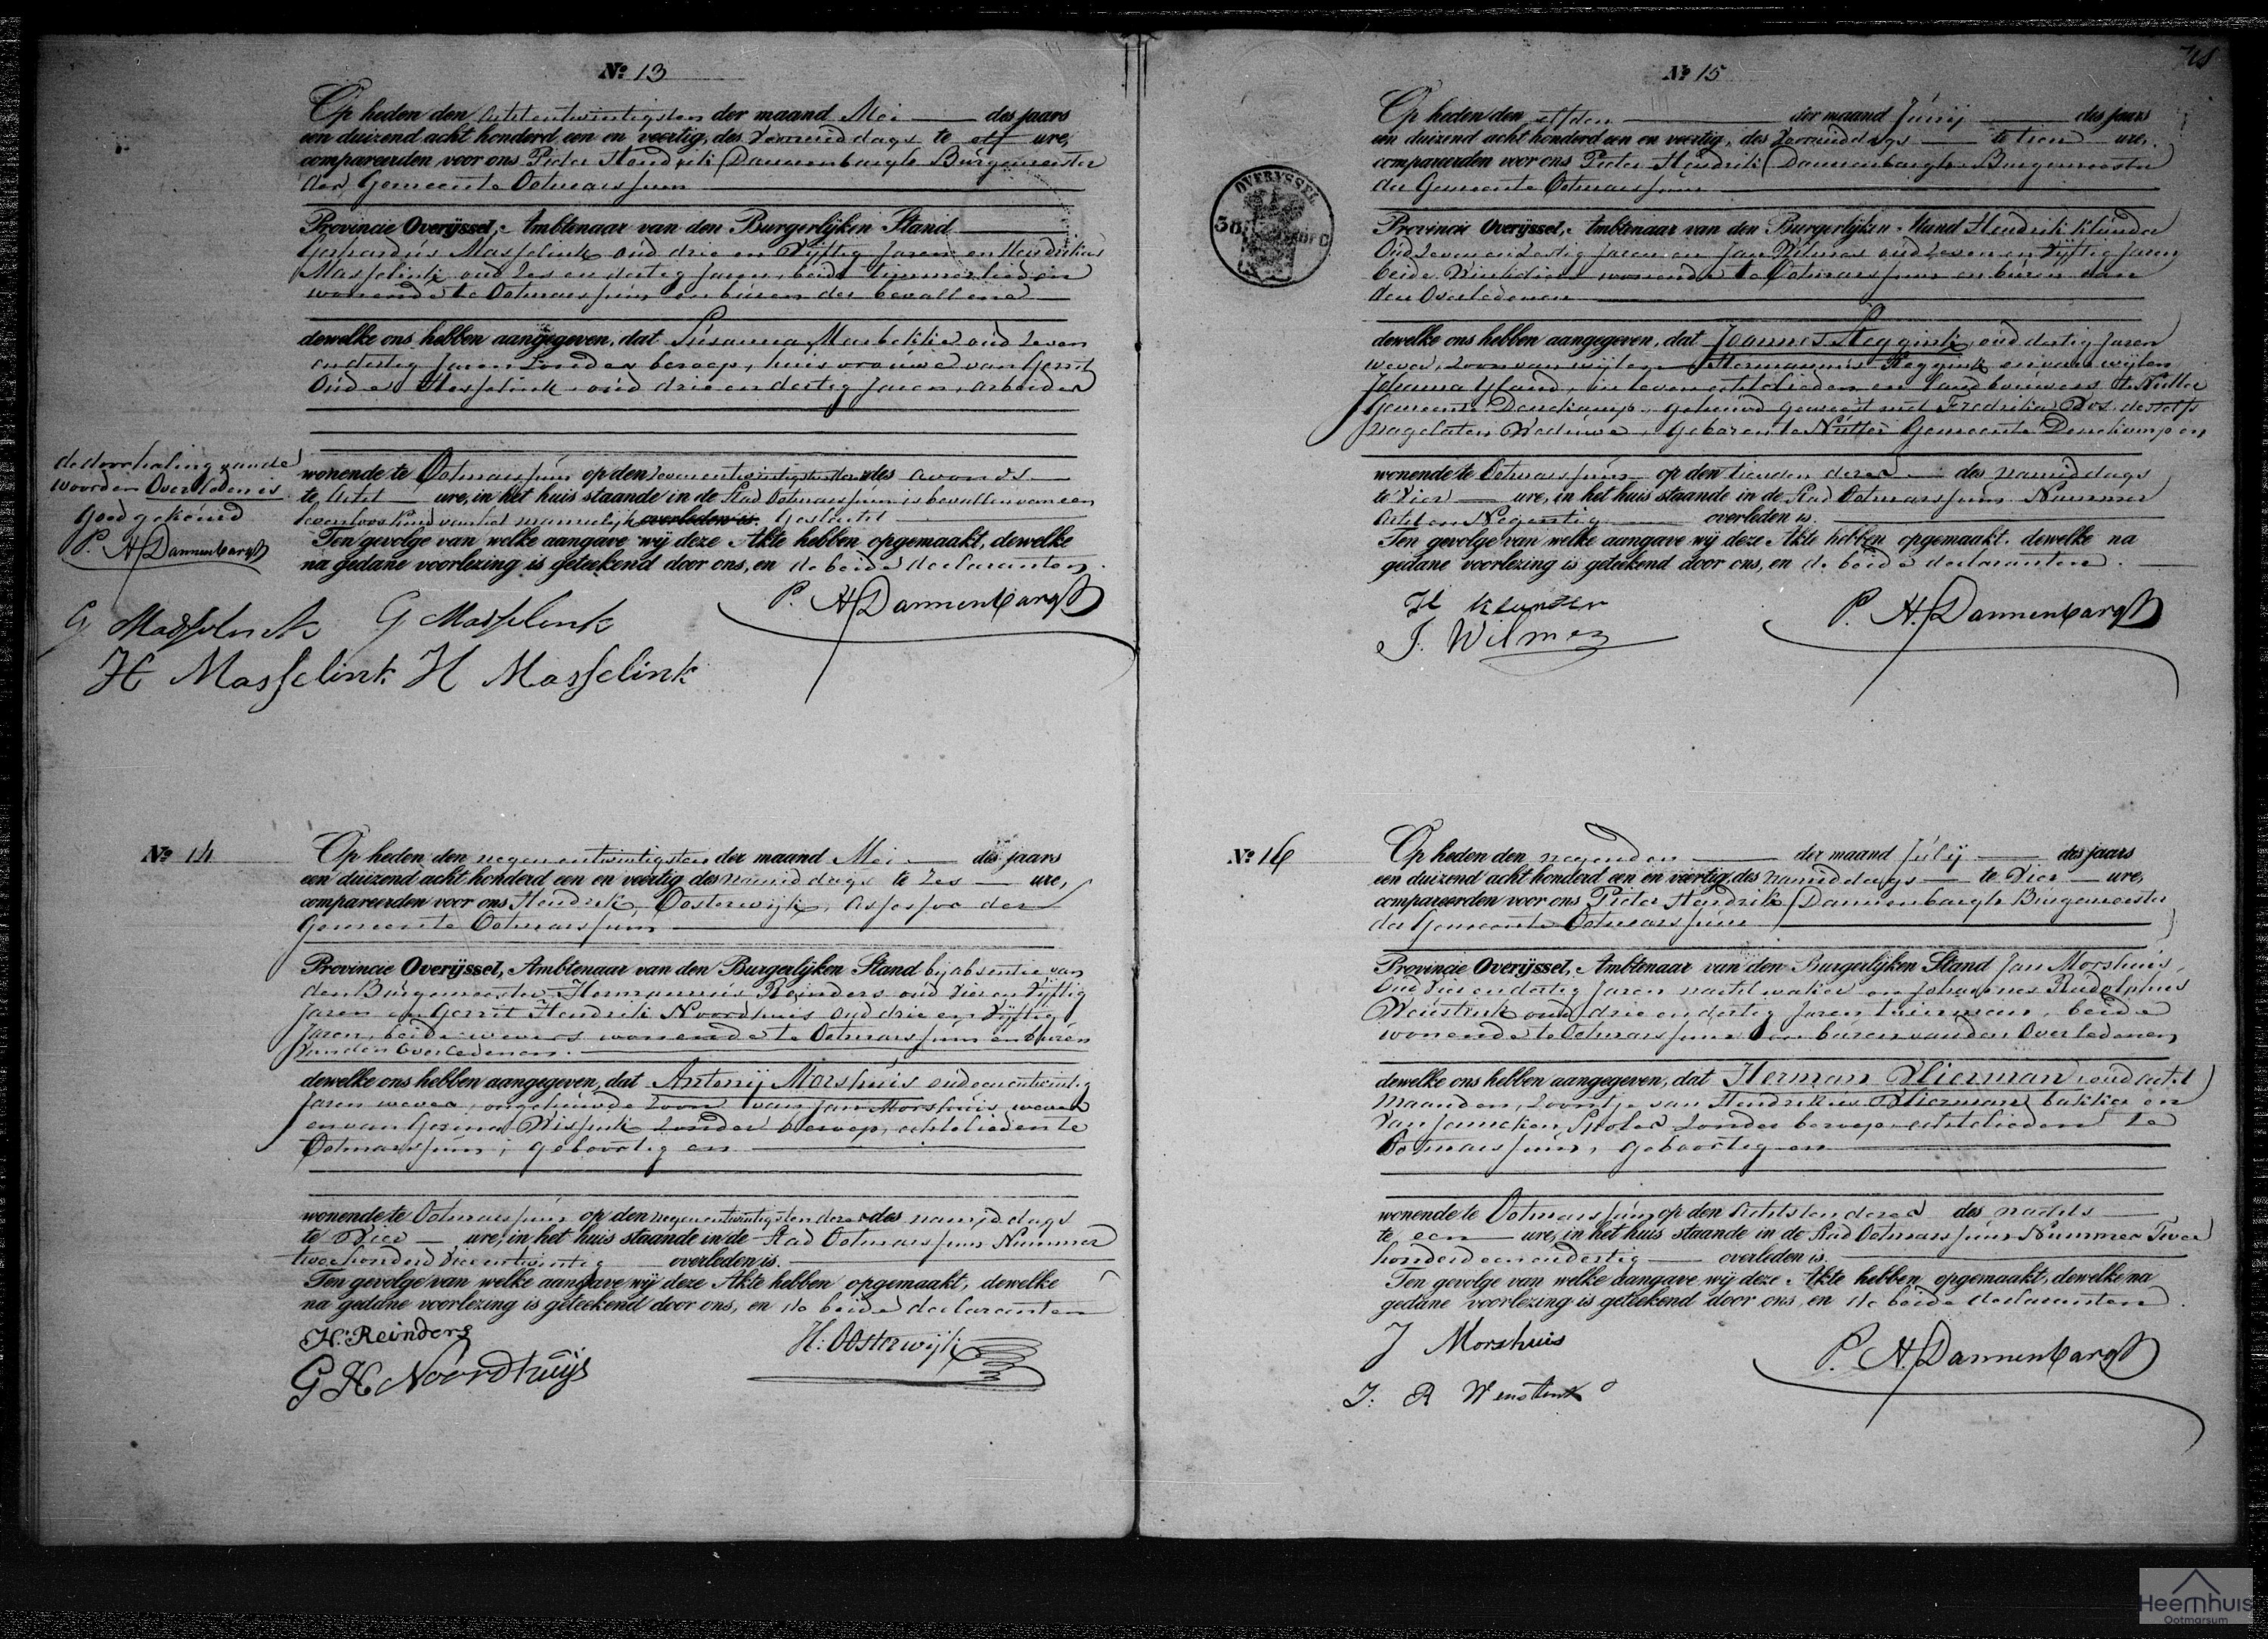 Nº 13
Op heden den achtentwintigsten der maand Mei des jaars
een duizend acht honderd een en veertig, des voormiddags te elf ure,
compareerden voor ons Pieter Hendrik Dannenbargh Burgemeester
der Gemeente Ootmarssum
Provincie Overijssel, Ambtenaar van den Burgerlijken Stand
Gerhardus Masselink oud drie en vijftig Jaren en Hendrikus
Masselink oud zes en dertig Jaren, beide timmerlieden
wonende te Ootmarssum en buren der bevallene
dewelke ons hebben aangegeven, dat Susanna oud zeven
en dertig Jaren zonder beroep, huisvrouw van Gerrit
Oude oud drie en dertig Jaren, arbeider
wonende te Ootmarssum op den zevenentwintigsten dezer des avonds
te acht ure, in het huis staande in de Stad Ootmarssum is bevallen van een
levenloos kind van het mannelijk overleden is. Geslacht
Ten gevolge van welke aangave wij deze Akte hebben opgemaakt, dewelke
na gedane voorlezing is geteekend door ons, en de beide declaranten.
de doorhaling van de
woorden Overleden is
goedgekeurd
P. H. Dannenbargh
P. H. Dannenbargh
G Masselink G Masselink
H Masselink H Masselink
Nº 14
Op heden den negenentwintigsten der maand Mei des jaars
een duizend acht honderd een en veertig des namiddags te zes ure,
compareerden voor ons Hendrik Oosterwijk, Assessor der
Gemeente Ootmarssum
Provincie Overijssel, Ambtenaar van den Burgerlijken Stand bij absentie van
den Burgemeester Hermannus Reinders oud vier en vijftig
Jaren en Gerrit Hendrik Noordhuis oud drie en vijftig
Jaren, beide wevers wonende te Ootmarssum en buren
van den Overledenen.
dewelke ons hebben aangegeven, dat Antonij Morshuis oud eenentwintig
Jaren wever, ongehuwde zoon van Jan Morshuis wever
en van Gesina zonder beroep, echtelieden te
Ootmarssum, geboortig en
wonende te Ootmarssum op den negenentwintigsten dezer des namiddags
te Vier ure, in het huis staande in de Stad Ootmarssum Nummer
twee honderd vierentwintig overleden is.
Ten gevolge van welke aangave wij deze Akte hebben opgemaakt, dewelke
na gedane voorlezing is geteekend door ons, en de beide declaranten
H. Reinders
H: Oosterwijk
G H Noordhuijs
718
Nº 15
OVERYSSEL
Op heden den elfden der maand Junij des jaars
een duizend acht honderd een en veertig, des voormiddags te tien ure,
compareerden voor ons Pieter Hendrik Dannenbargh Burgemeester
der Gemeente Ootmarssum
Provincie Overijssel, Ambtenaar van den Burgerlijken Stand Hendrik Klunder
oud zeven en zestig Jaren en Jan Wilmes oud zeven en vijftig Jaren
beide wonende te Ootmarssum en buren van
den Overledenen
dewelke ons hebben aangegeven, dat Joannes Steggink, oud dertig Jaren
wever, zoon van wijlen Hermannus Steggink en van wijlen
Johanna in leven echtelieden en landbouwers te Nutter
Gemeente Denekamp, gehuwd geweest met Fredrika Vos, deszelfs
nagelaten Weduwe, geboren te Nutter Gemeente Denekamp en
wonende te Ootmarssum op den tienden dezer des namiddags
te Vier ure, in het huis staande in de Stad Ootmarssum Nummer
acht en Negentig overleden is.
Ten gevolge van welke aangave wij deze Akte hebben opgemaakt, dewelke na
gedane voorlezing is geteekend door ons, en de beide declaranten.
H Klunder
P. H. Dannenbargh
J. Wilmes
Nº 16
Op heden den negenden der maand Julij des jaars
een duizend acht honderd een en veertig, des namiddags te Vier ure,
compareerden voor ons Pieter Hendrik Dannenbargh Burgemeester
der Gemeente Ootmarssum
Provincie Overijssel, Ambtenaar van den Burgerlijken Stand Jan Morshuis,
oud vier en dertig Jaren nachtwaker en Johannes Rudolphus
Weustink oud drie en dertig Jaren, beide
wonende te Ootmarssum en buren van den Overledenen
dewelke ons hebben aangegeven, dat Herman Vlierman, oud acht
maanden, zoontje van Hendrikus Vlierman, bakker en
van zonder beroep echtelieden te
Ootmarssum, geboortig en
wonende te Ootmarssum op den achtsten dezer des nachts
te een ure, in het huis staande in de Stad Ootmarssum Nummer Twee
honderd een en dertig overleden is.
Ten gevolge van welke aangave wij deze Akte hebben opgemaakt, dewelke na
gedane voorlezing is geteekend door ons, en de beide declaranten.
J Morshuis
P. H. Dannenbargh
J: R Weustink
Heemhuis
Ootmarsum